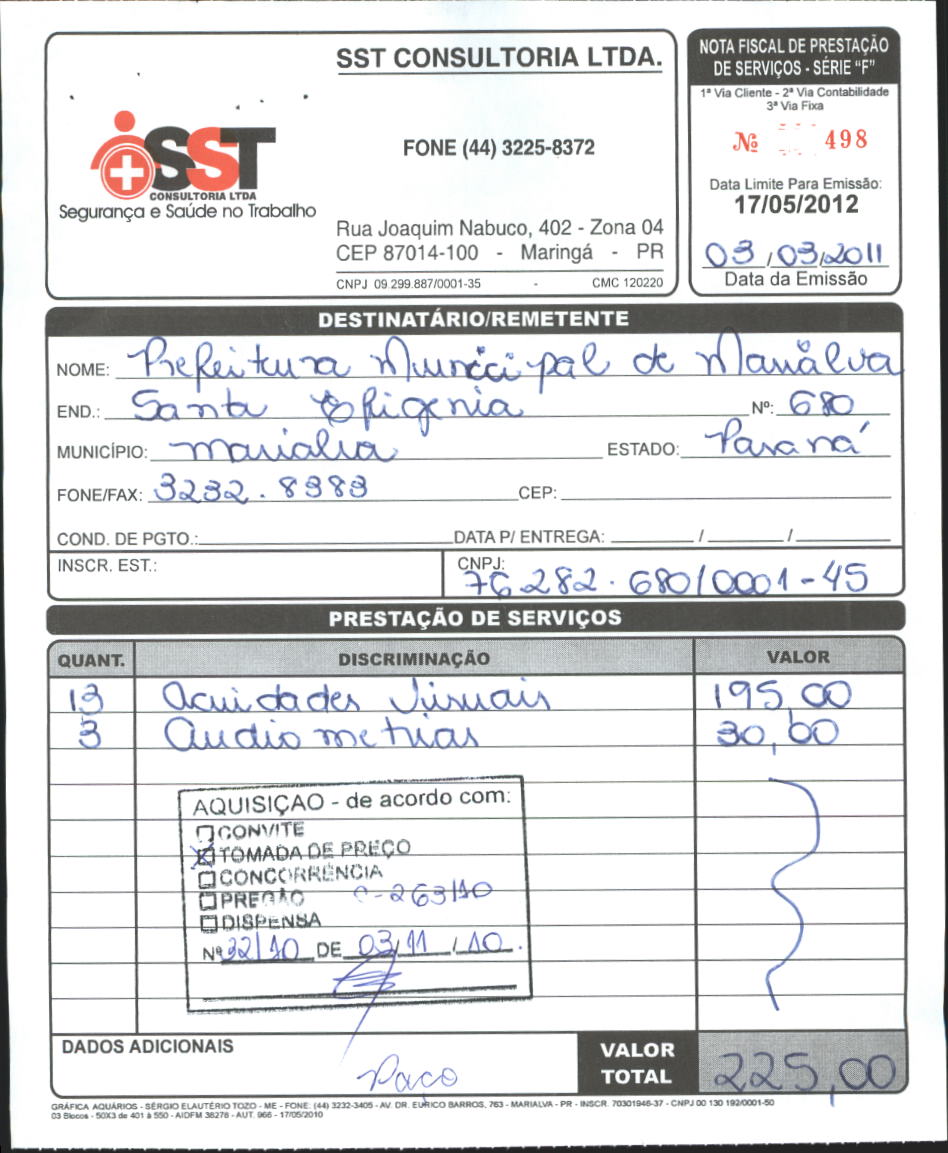 SST CONSULTORIA LTDA.
NOTA FISCAL DE PRESTAÇÃO
DE SERVIÇOS - SÉRIE "F"
1ª Via Cliente - 2ª Via Contabilidade
3ª Via Fixa
Nº 498
Data Limite Para Emissão:
17/05/2012
03/03/2011
Data da Emissão
SST
CONSULTORIA LTDA
Segurança e Saúde no Trabalho
FONE (44) 3225-8372
Rua Joaquim Nabuco, 402 - Zona 04
CEP 87014-100 - Maringá - PR
CNPJ 09.299.887/0001-35 - CMC 120220
DESTINATÁRIO/REMETENTE
NOME: Prefeitura Municipal de Marialva
END.: Santa Efigenia Nº: 680
MUNICÍPIO: Marialva ESTADO: Paraná
FONE/FAX: 3232.8383 CEP:
COND. DE PGTO.: DATA P/ ENTREGA: / /
INSCR. EST.: CNPJ: 76.282.680/0001-45
PRESTAÇÃO DE SERVIÇOS
QUANT. DISCRIMINAÇÃO VALOR
13 Acuidades Visuais 195,00
3 Audiometrias 30,00
AQUISIÇAO - de acordo com:
CONVITE
TOMADA DE PREÇO
CONCORRÊNCIA
PREGÃO C-263/10
DISPENSA
Nº 32/10 DE 03/11/10.
DADOS ADICIONAIS
Paço
VALOR
TOTAL 225,00
GRÁFICA AQUÁRIOS - SÉRGIO ELAUTÉRIO TOZO - ME - FONE: (44) 3232-3405 - AV. DR. EURICO BARROS, 763 - MARIALVA - PR - INSCR. 70301946-37 - CNPJ 00 130 192/0001-50
03 Blocos - 50X3 de 401 à 550 - AIDFM 38278 - AUT. 966 - 17/05/2010